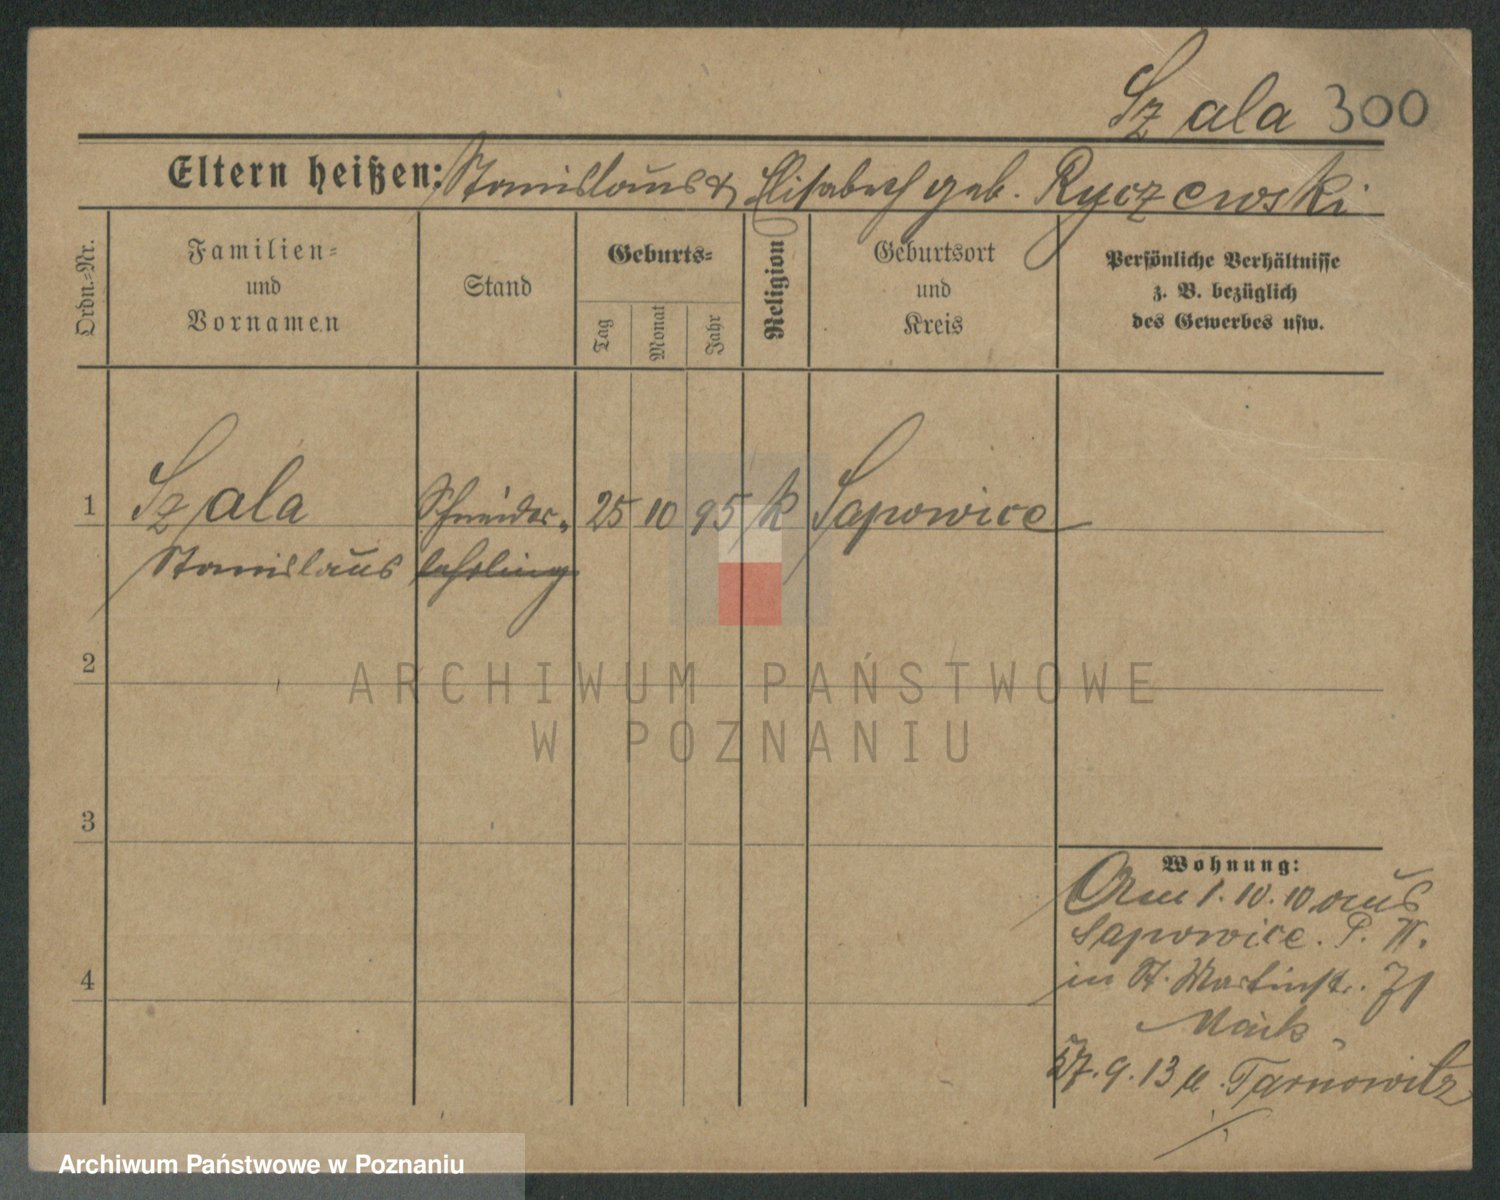 Szala 300
Eltern heißen: Stanislaus & Elisabeth geb. Ryczewski
Ordn.-Nr.
Familien-
und
Vornamen
Stand
Geburts-
Tag
Monat
Jahr
Religion
Geburtsort
und
Kreis
Persönliche Verhältnisse
z. B. bezüglich
des Gewerbes usw.
1 Szala Schneider- 25 10 95 k Sapowice
Stanislaus lehrling
2
ARCHIWUM PAŃSTWOWE
W POZNANIU
3
4
Wohnung:
Am 1.10.10 aus
Sapowice. P. W.
in St. Martinstr. 71
27.9.13 n. Tarnowitz
Archiwum Państwowe w Poznaniu